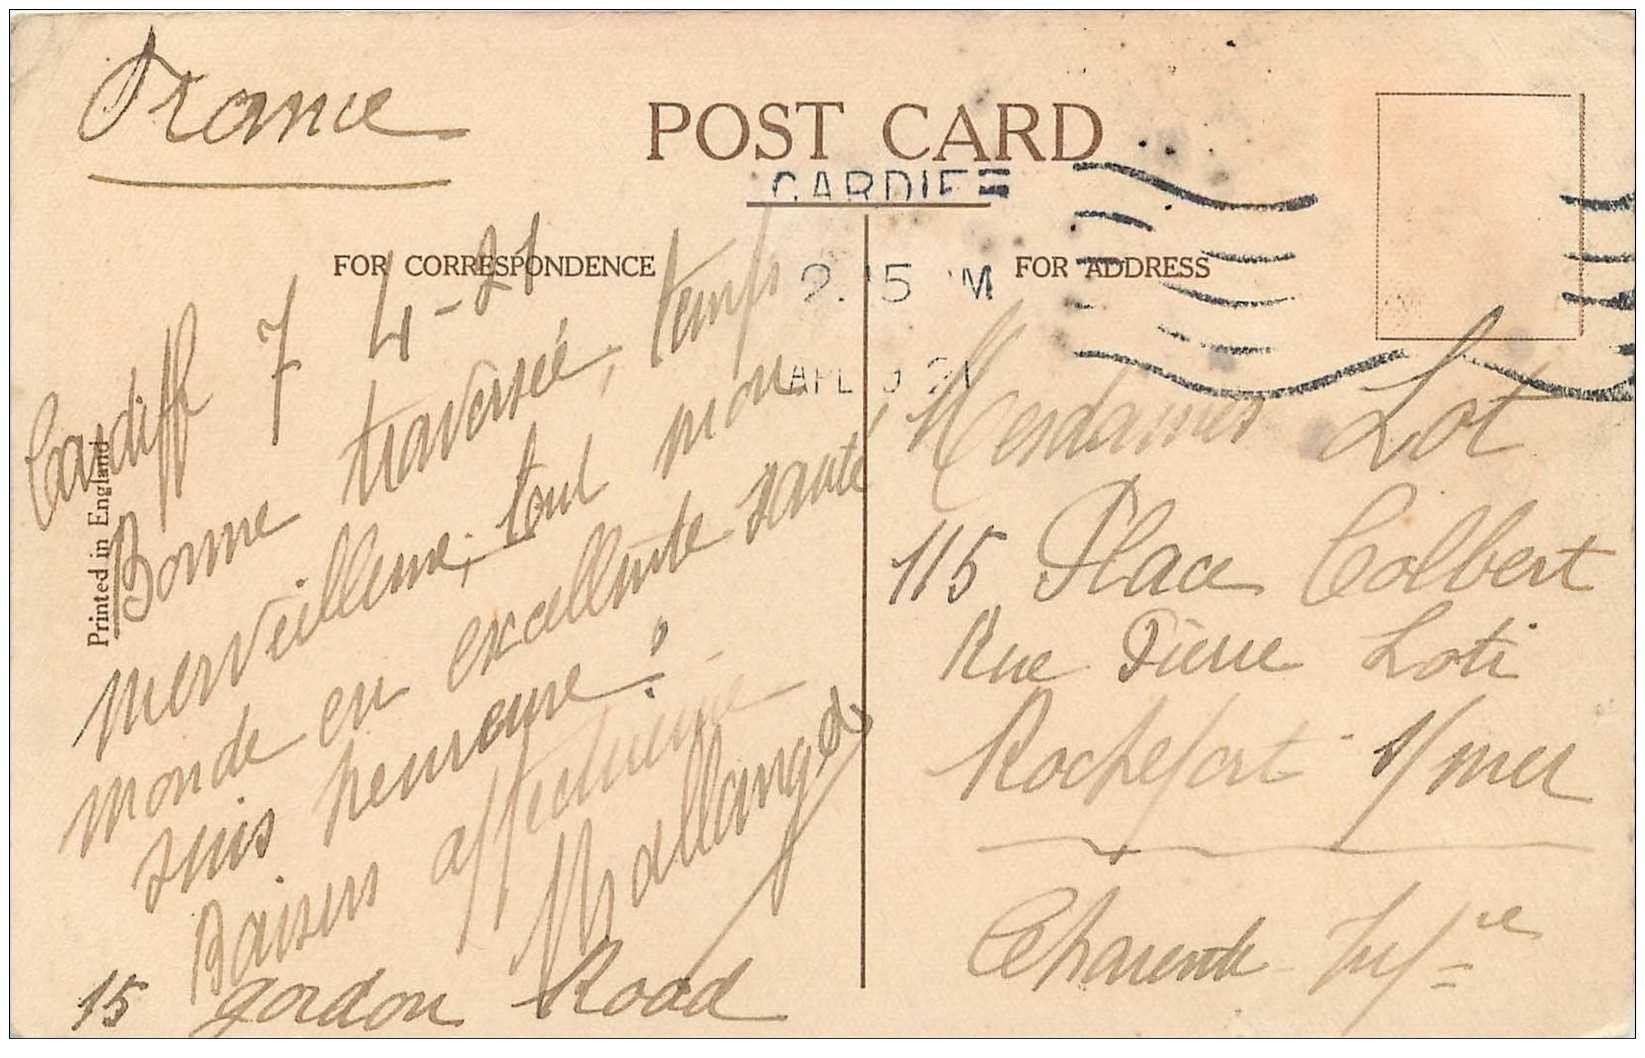 France
POST CARD
CARDIFF
FOR CORRESPONDENCE
2.15 PM
FOR ADDRESS
APL 21
Printed in England
Cardiff 7 4-21
Bonne traversée, temps
merveilleux, tout mon
monde en excellente santé,
suis heureuse!
Baisers affectueux
15 Gordon Road
Mesdames Lot
115 Place Colbert
Rue Pierre Loti
Rochefort s/mer
Charente Infre